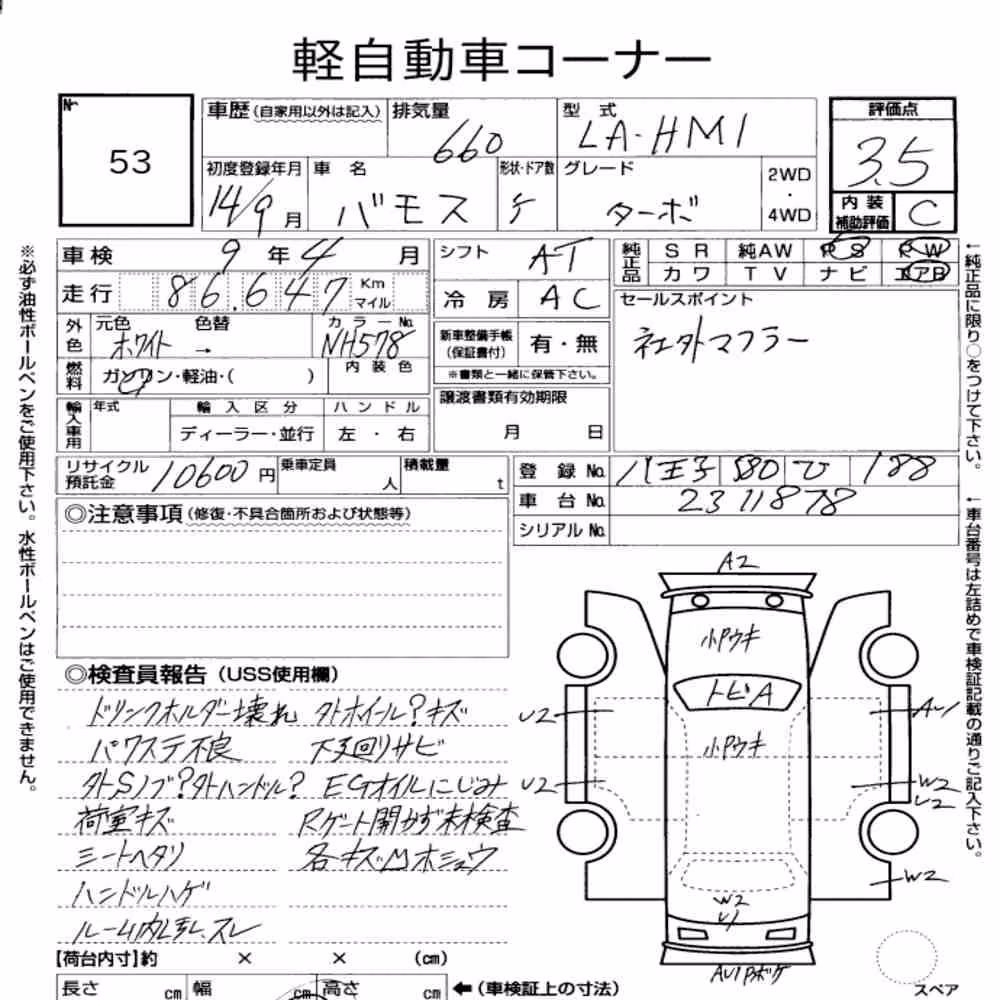 軽自動車コーナー
№
53
車歴 (自家用以外は記入)
排気量
660
型 式
LA-HM1
評価点
3.5
初度登録年月
14/9 月
車 名
バモス
形状・ドア数
グレード
ターボ
2WD
・
4WD
内 装
補助評価
C
車検 9 年 4 月
シフト AT
純正品
S R 純AW P S P W
カ ワ T V ナ ビ エアB
走行 86.647 Km
マイル
冷 房 AC
セールスポイント
社外マフラー
外色 元色 色替 カラー№
ホワイト → NH578
新車整備手帳
(保証書付)
有・無
※書類と一緒に保管下さい。
燃料 ガソリン・軽油・( ) 内 装 色
輸入車用 年式 輸 入 区 分 ハ ン ド ル
ディーラー・並行 左 ・ 右
譲渡書類有効期限
月 日
リサイクル
預託金
10600 円
乗車定員
人
積載量
t
登 録 № 八王子 580 ひ 188
車 台 № 2311878
シリアル №
◎注意事項 (修復・不具合箇所および状態等)
◎検査員報告 (USS使用欄)
ドリンクホルダー壊れ 外ホイール?キズ
パワステ不良 下廻りサビ
外Sノブ?外ハンドル? EGオイルにじみ
荷室キズ Rゲート開かず未検査
シートヘタリ 各キズ凹ホシュウ
ハンドルハゲ
ルーム内 スレ
A2
小Pウキ
トビA
小Pウキ
U2
U2
AU1
W2
U2
W2
W2
U1
AU1Pボケ
スペア
【荷台内寸】約 × × (cm)
長さ cm 幅 cm 高さ cm
←(車検証上の寸法)
※必ず油性ボールペンをご使用下さい。水性ボールペンはご使用できません。
←純正品に限り○をつけて下さい。
←車台番号は左詰めで車検証記載の通りご記入下さい。